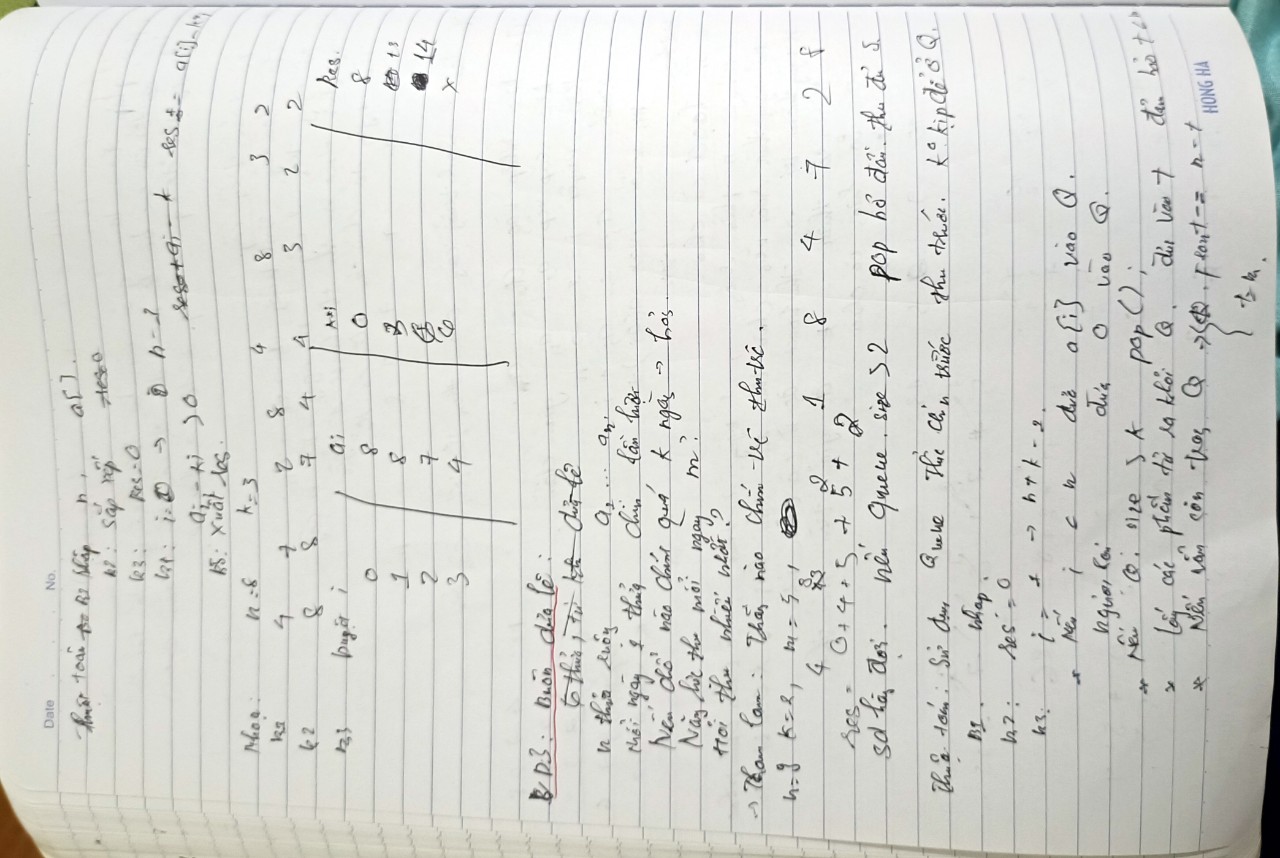 Date No.
Thuật toán B1 nhập n, a[].
k2: sắp xếp
k3: Res=0
k4: i=0 → n-1
ai - ki >0 res += a[i]-k*i
k5: xuất res.
n=8 k=3
k1 4 7 2 8 4 8 3 2
k2 8 8 7 4 4 3 2 2
k3 Duyệt i ai k*i Res.
0 8 0 8
1 8 3 13
2 7 6 14
3 4 x
VD3: Buôn dưa lê:
n thửa ruộng a1 ... an.
Mỗi ngày 1 thửa chín lần lượt
Nếu chỗ nào chín quá k ngày → hỏng.
Năng lực thu mỗi ngày m?
Hỏi thu nhiều nhất?
→ Tham lam: Thằng nào chín thu
n=9 k=2, m=5,
4 8 2 1 8 4 7 2 8
res = 0+4+5+5+2
sd hàng đợi. nếu Queue.size >2 pop bỏ đầu. thu đủ 5.
Thuật toán: Sử dụng Queue Thửa chín trước thu trước. ko kịp để ở Q.
B1. Nhập.
k2: res = 0
k3: i = 1 → n+k-1.
* Nếu i < n đưa a[i] vào Q.
ngược lại đưa 0 vào Q.
* Nếu Q.size > k pop();
* Lấy các phần tử ra khỏi Q. vào t
* Nếu vẫn còn trong Q → Q.front -= n-t
HONG HA